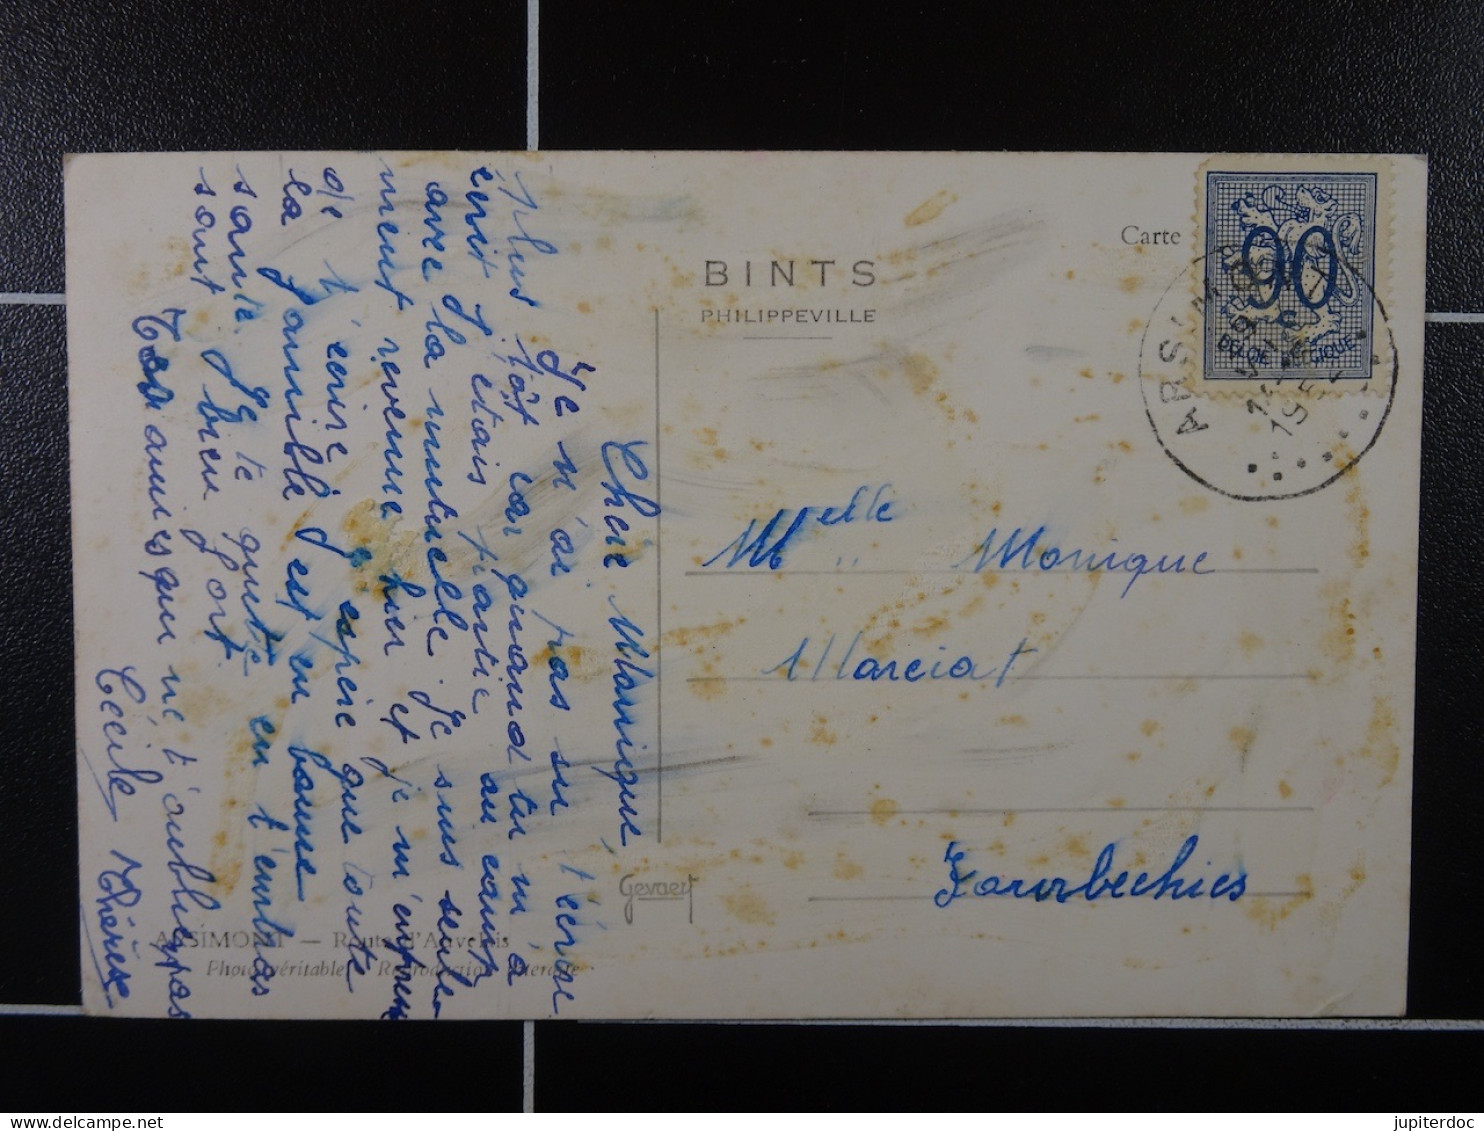 Chère Monique,
Je n'ai pas su t'écrire
plus tôt car quand tu m'a
écrit j'étais partie au camp
avec la mutuelle. Je suis seule-
ment revenue hier et je m'empresse
de t'écrire. J'espère que toute
la famille est en bonne
santé. Je te quitte en t'embras
sant bien fort.
Ton amie qui ne t'oublie pas
Cécile Thérèse
BINTS
PHILIPPEVILLE
Carte
90
BELGIE BELGIQUE
ARSIMONT
Melle Monique
Marciat
Jamrbechies
Gevaert
ARSIMONT — Route d'Auvelais
Photo véritable - Reproduction interdite
jupiterdoc
delcampe.net